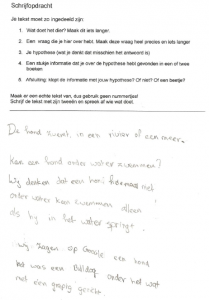 Schrijfopdracht
Je tekst moet zo ingedeeld zijn:
1. Wat doet het dier? Maak dit iets langer
2. Een vraag die je hier over hebt. Maak deze vraag heel precies en iets langer
3. Je hypothese (wat je denkt dat misschien het antwoord is)
4. Een stukje informatie dat je over de hypothese hebt gevonden in een of twee boeken.
5. Afsluiting: klopt de informatie met jouw hypothese? Of niet? Of een beetje?
Maak er een echte tekst van, dus gebruik geen nummertjes!
Schrijf de tekst met zijn tweeën en spreek af wie wat doet.
De hond zwemt, in een rivier of een meer.
Kan een hond onder water zwemmen?
Wij denken dat een hond niet
onder water kan zwemmen alleen
als hij in het water springt.
wij zagen op Google een hond
het was een Bulldog onder het wat
met een grapig gezicht.